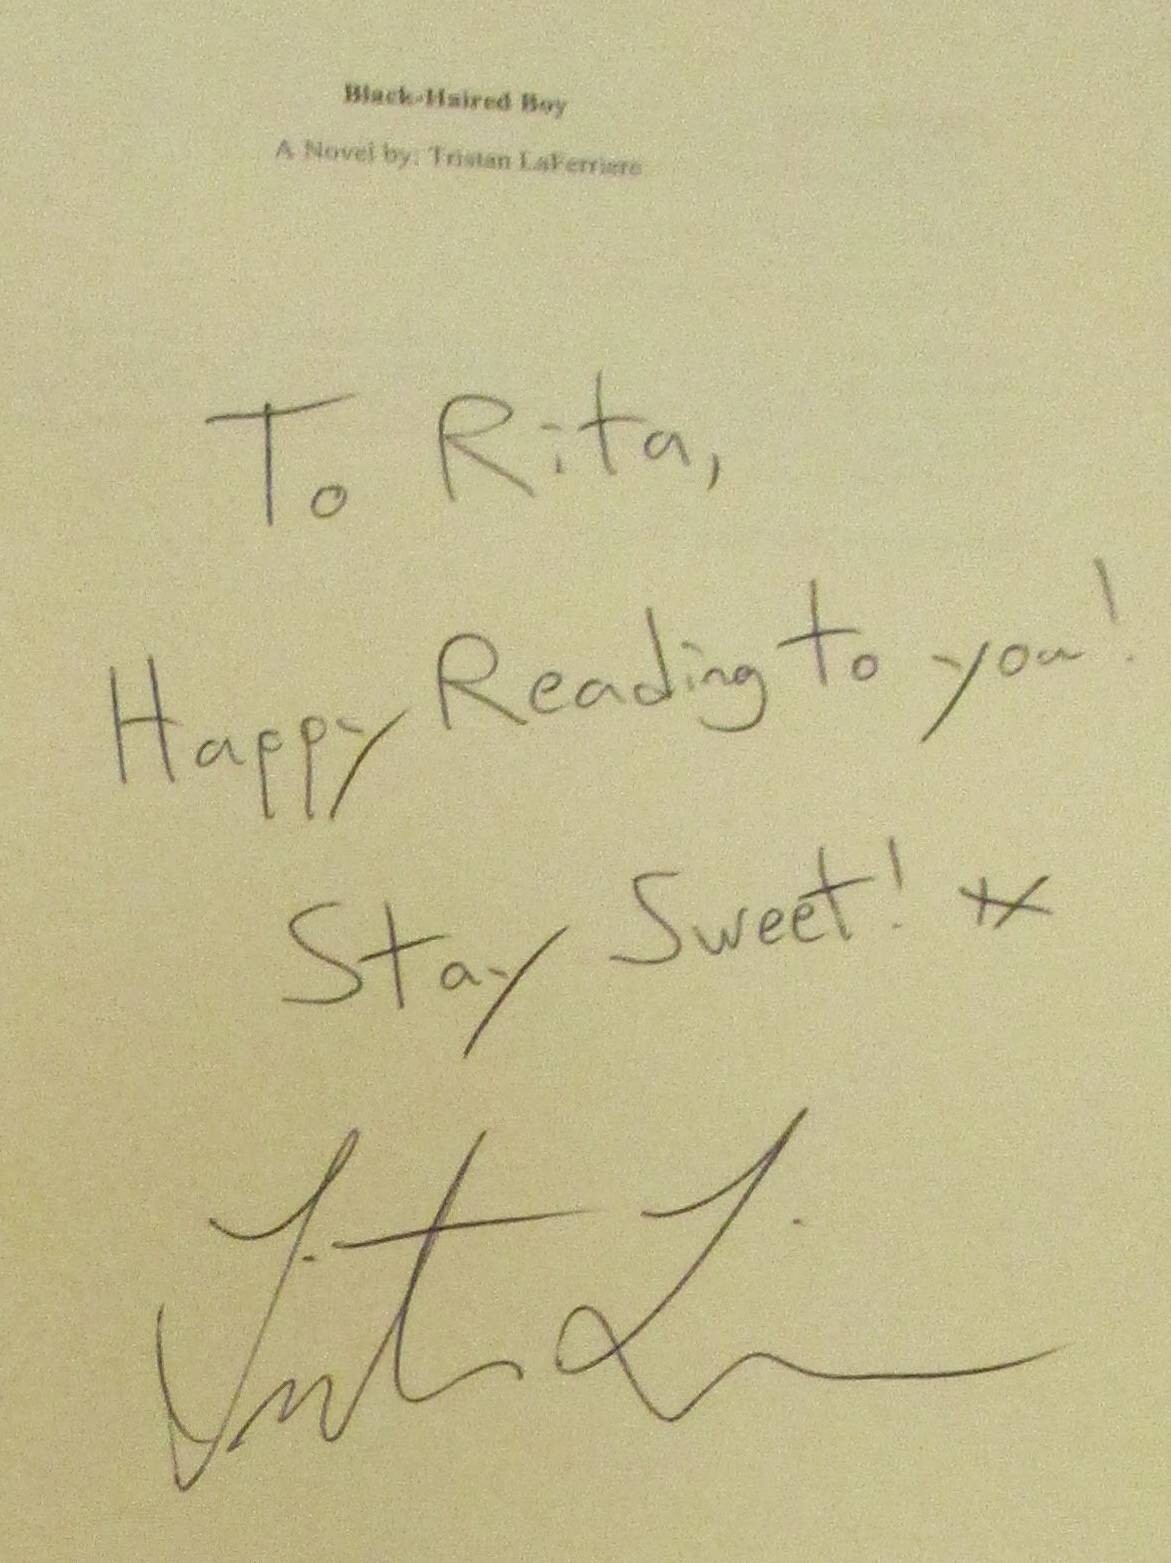 Black-Haired Boy
A Novel by: Tristan LaFerriere
To Rita,
Happy Reading to you!
Stay Sweet!